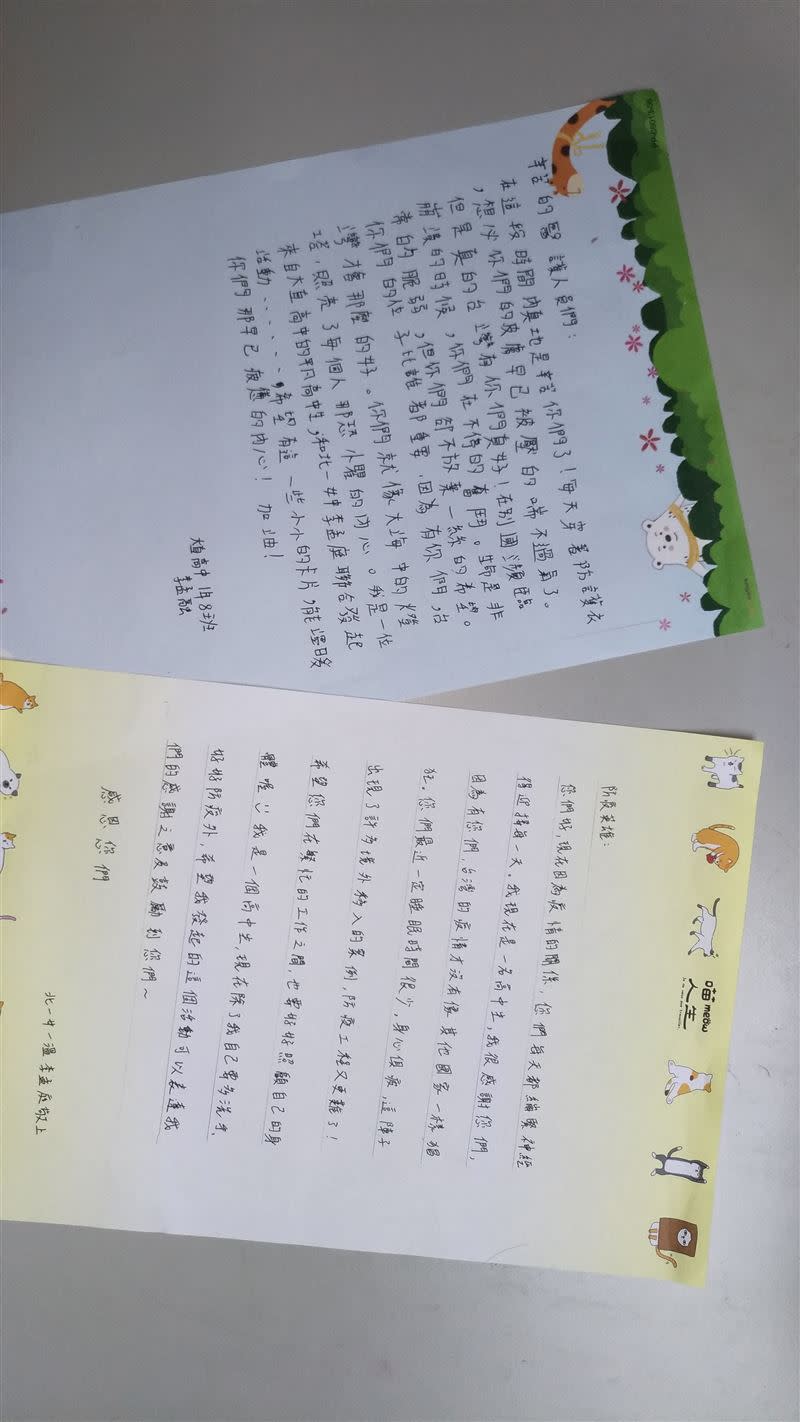 辛苦的醫護人員們：
在這段時間內真地是辛苦你們了！每天穿著防護衣
，想必你們的皮膚早已被壓的喘不過氣了。
但是真的台灣有你們真好！在別國瀕臨
崩潰的時候，你們在不停的奮鬥。命是非
常的脆弱，但你們卻不放棄一絲的希望。
你們的位子比誰都重要，因為有你們，台
灣才會那麼的好。你們就像大海中的燈
塔，照亮了每個人那恐懼的內心。我是一位
來自大直高中的平凡高中生，和北一女中李孟庭聯合發起
活動......，希望有這一些小小的卡片，能溫暖
你們那早已疲憊的內心！加油！
大直高中1年8班
李孟融
meow
喵
人生
防疫英雄：
您們好，現在因為疫情的關係，您們每天都繃緊神經
得迎接每一天。我現在是一名高中生，我很感謝您們，
因為有您們，台灣的疫情才沒有像其他國家一樣猖
狂。您們最近一定睡眠時間很少，身心俱疲，這陣子
出現了許多境外移入的案例，防疫工程又更難了！
希望您們在繁忙的工作之間，也要好好照顧自己的身
體喔 我是一個高中生，現在除了我自己要多洗手、
好好防疫外，希望我發起的這個活動可以表達我
們的感謝之意及鼓勵到您們～
感恩您們
北一女一溫李孟庭敬上